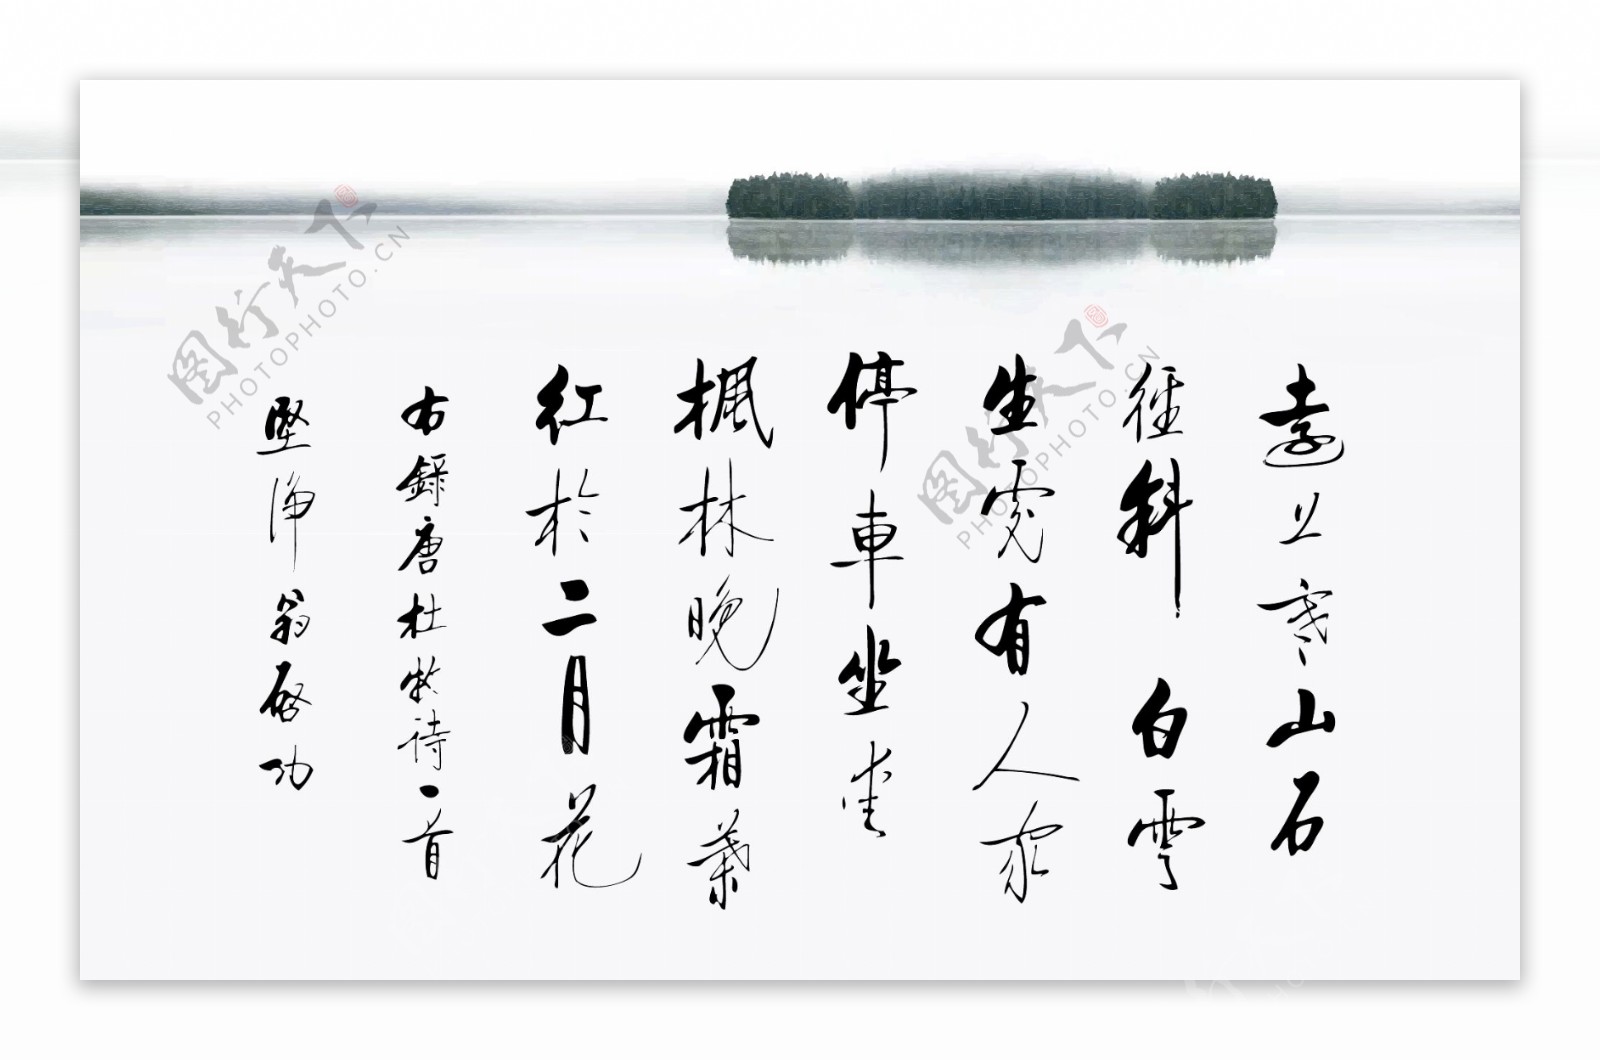 遠上寒山石
徑斜白雲
生處有人家
停車坐愛
楓林晚霜葉
紅於二月花
右錄唐杜牧詩一首
堅淨翁啓功
图行天下
PHOTOPHOTO.CN
图行天下
PHOTOPHOTO.CN